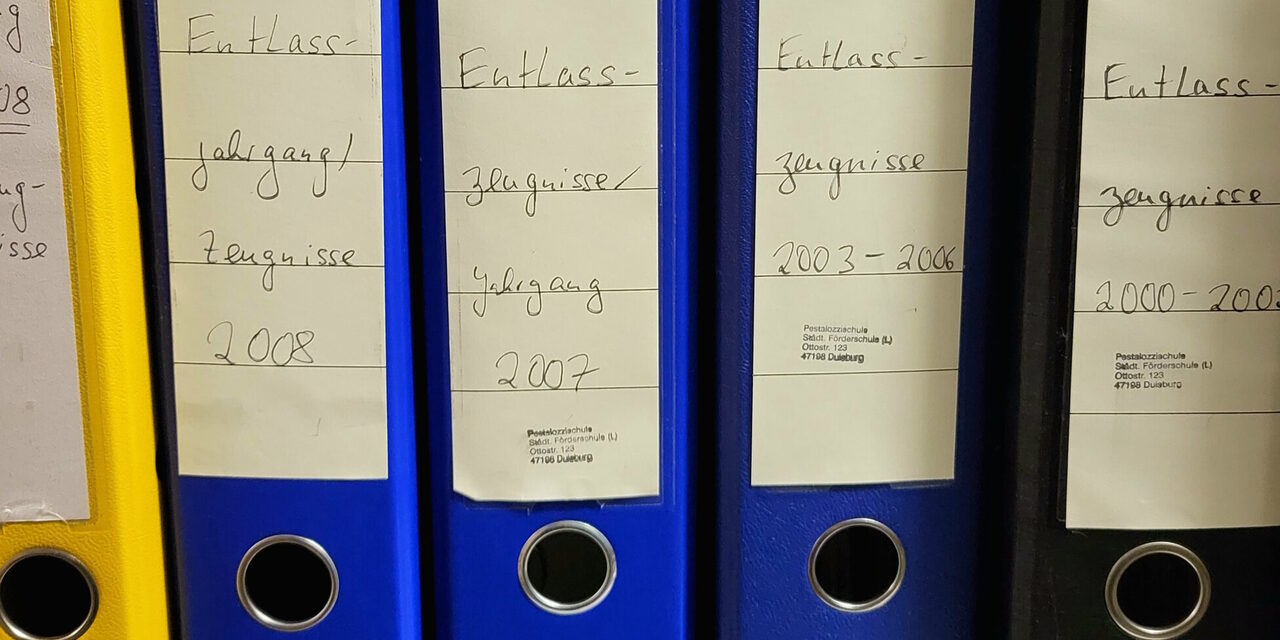 08
Entlass-
Jahrgang/
Zeugnisse
2008
Entlass-
Zeugnisse/
Jahrgang
2007
Pestalozzischule
Städt. Förderschule (L)
Ottostr. 123
47198 Duisburg
Entlass-
Zeugnisse
2003-2006
Pestalozzischule
Städt. Förderschule (L)
Ottostr. 123
47198 Duisburg
Entlass-
Zeugnisse
2000-200
Pestalozzischule
Städt. Förderschule (L)
Ottostr. 123
47198 Duisburg